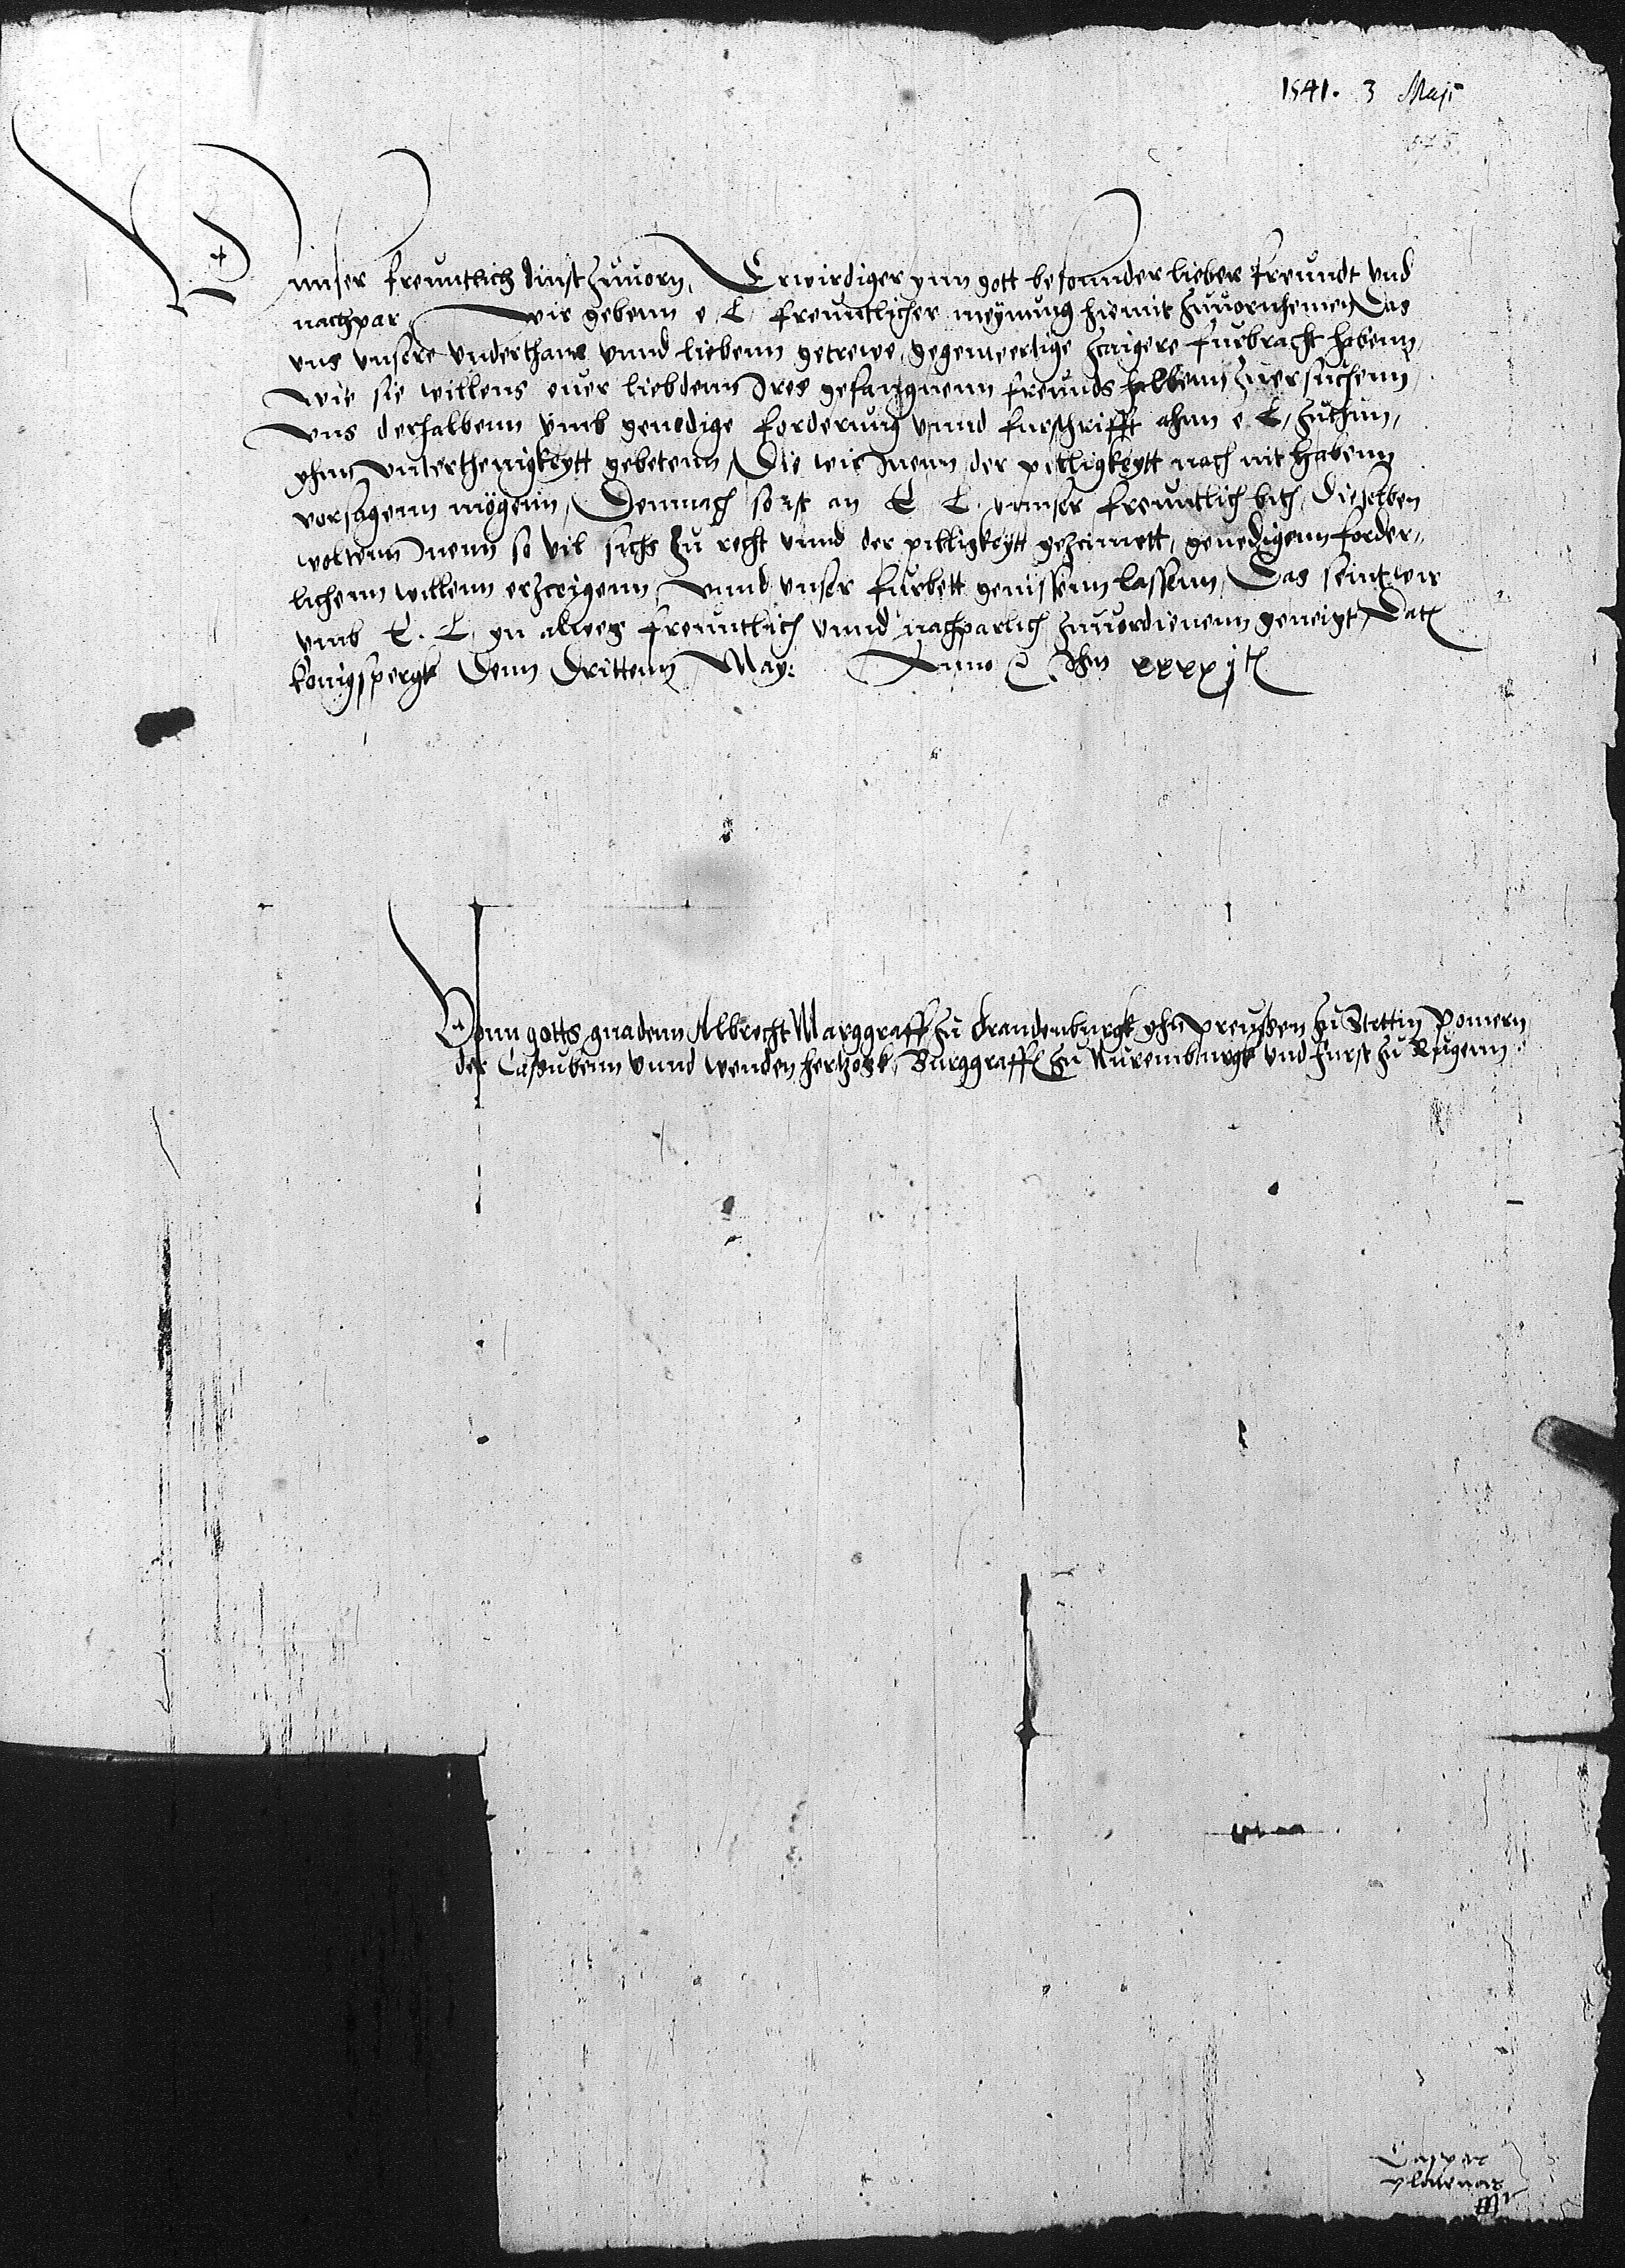 1541. 3 Maji
Vnnser freuntlich dinst zuuorn, Erwirdiger ynn gott besonnder lieber freundt vnd
nachpar, Wir gebenn e. L. freuntlicher meynung hiemit zuuornhemen Das
vns vnsere vnderthane vnnd liebenn getrewe, gegenwertige zaigere furbracht habenn,
Wie sie willens euer liebdenn Ires gefangnenn freunds halbenn zuersuchenn
Vns derhalbenn vmb genedige forderung vnnd furschrifft ahnn e. L. zuthun,
yhnn vnterthenigkeytt gebetenn, Die wir Inenn der pilligkeytt nach nit habenn
vorsagenn mögenn, Demnach so ist an E L vnnser freuntlich bith, dieselben
woltenn Inenn so vil sichs zu recht vnnd der pilligkeytt gezimett, genedigenn forder,,
lichenn willenn erzceigenn, vnnd vnser furbett genissenn lassenn, Das seint wir
vmb E. L. yn alweg freuntlich vnnd nachparlich zuuordienenn geneigt, Dat
Konigspergk Denn Drittenn May: Anno im xxxxj
Vonn gotts gnadenn Albrecht Marggraff zu Brandenburgk yhn preussen zu Stettin Pomern
der Cassubenn vnnd wenden hertzogk, Burggraff zu Nuremburgk vnd furst zu Rugenn
Casper